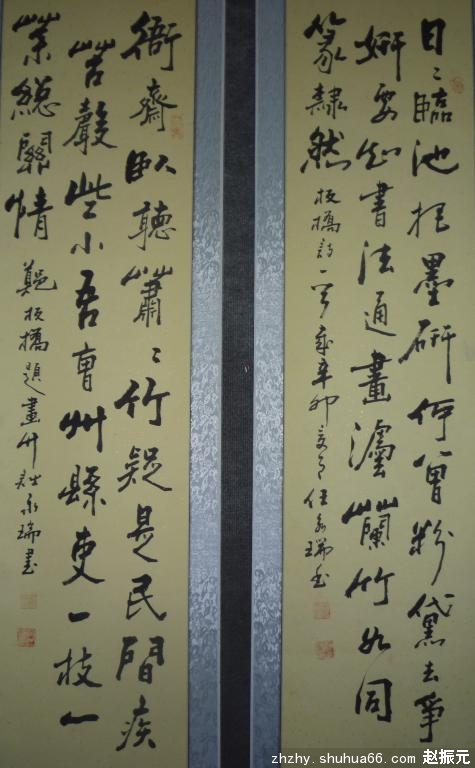 日〻臨池把墨研何曾粉黛去爭
妍要知書法通畫灋蘭竹如同
篆隸然
板橋詩一首歲辛卯夏月任永瑞書
衙齋臥聽蕭〻竹疑是民間疾
苦聲些小吾曹州縣吏一枝一
葉總關情
鄭板橋題畫竹詩永瑞書
zhzhy.shuhua66.com 赵振元